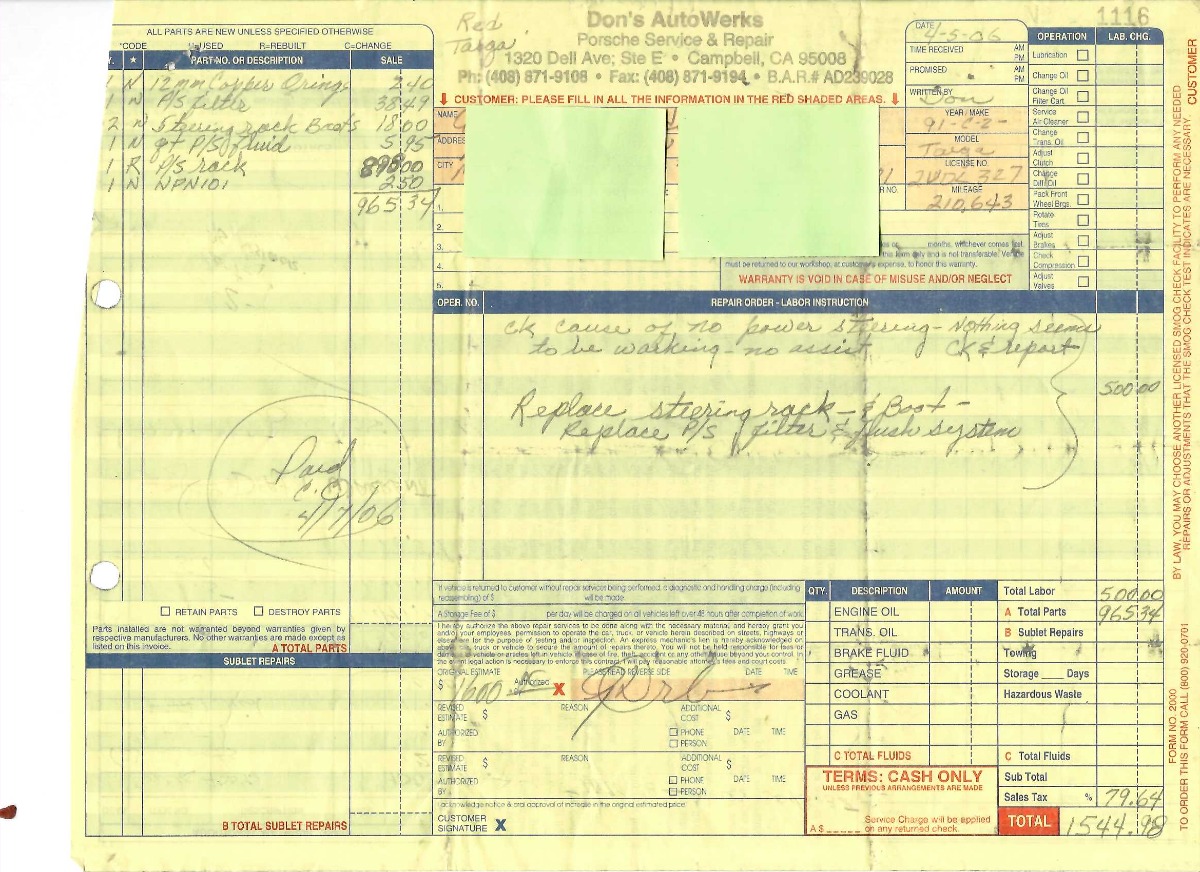 ALL PARTS ARE NEW UNLESS SPECIFIED OTHERWISE
*CODE U=USED R=REBUILT C=CHANGE
Y. * PART NO. OR DESCRIPTION SALE
1 N 12mm Copper Orings 2.40
1 N P/S filter 38.49
2 N Steering rack Boots 18.00
1 N qt P/S fluid 5.95
1 R P/S rack 898.00
1 N NPN101 2.50
965.34
Paid
C.C.
4/7/06
RETAIN PARTS DESTROY PARTS
Parts installed are not warranted beyond warranties given by
respective manufacturers. No other warranties are made except as
listed on this invoice.
A TOTAL PARTS
SUBLET REPAIRS
B TOTAL SUBLET REPAIRS
Red
Targa
Don's AutoWerks
Porsche Service & Repair
1320 Dell Ave; Ste E • Campbell, CA 95008
Ph: (408) 871-9108 • Fax: (408) 871-9194 • B.A.R.# AD239028
CUSTOMER: PLEASE FILL IN ALL THE INFORMATION IN THE RED SHADED AREAS.
NAME
ADDRES
CITY
1.
2.
3.
4.
5.
1116
DATE 4-5-06
TIME RECEIVED AM PM
PROMISED AM PM
WRITTEN BY Don
YEAR / MAKE
91-C-2-
MODEL
Targa
LICENSE NO.
327
MILEAGE
210,643
months, whichever comes first.
this form only and is not transferable. Vehicle
must be returned to our workshop, at customer's expense, to honor this warranty.
WARRANTY IS VOID IN CASE OF MISUSE AND/OR NEGLECT
OPERATION LAB. CHG.
Lubrication
Change Oil
Change Oil Filter Cart.
Service Air Cleaner
Change Trans. Oil
Adjust Clutch
Change Diff Oil
Pack Front Wheel Brgs.
Rotate Tires
Adjust Brakes
Check Compression
Adjust Valves
OPER. NO. REPAIR ORDER - LABOR INSTRUCTION
ck cause of no power steering - Nothing seems
to be working - no assist CK & report
500.00
Replace steering rack - & Boot -
Replace P/S filter & flush system
If vehicle is returned to customer without repair services being performed, a diagnostic and handling charge (including
reassembling) of $ will be made.
A Storage Fee of $ per day will be charged on all vehicles left over 48 hours after completion of work.
I hereby authorize the above repair services to be done along with the necessary material, and hereby grant you
and/or your employees, permission to operate the car, truck, or vehicle herein described on streets, highways or
elsewhere for the purpose of testing and/or inspection. An express mechanic's lien is hereby acknowledged on
above car, truck or vehicle to secure the amount of repairs thereto. You will not be held responsible for loss or
damage to vehicle or articles left in vehicle in case of fire, theft, accident or any other cause beyond your control. In
the event legal action is necessary to enforce this contract, I will pay reasonable attorney's fees and court costs.
ORIGINAL ESTIMATE PLEASE READ REVERSE SIDE DATE TIME
$ 1600.00 Authorized By X
REVISED ESTIMATE $ REASON ADDITIONAL COST $
AUTHORIZED BY PHONE PERSON DATE TIME
REVISED ESTIMATE $ REASON ADDITIONAL COST $
AUTHORIZED BY PHONE PERSON DATE TIME
I acknowledge notice & oral approval of increase in the original estimated price.
CUSTOMER SIGNATURE X
QTY. DESCRIPTION AMOUNT
ENGINE OIL
TRANS. OIL
BRAKE FLUID
GREASE
COOLANT
GAS
C TOTAL FLUIDS
TERMS: CASH ONLY
UNLESS PREVIOUS ARRANGEMENTS ARE MADE
A $ Service Charge will be applied
on any returned check.
Total Labor 500.00
A Total Parts 965.34
B Sublet Repairs
Towing
Storage ____ Days
Hazardous Waste
C Total Fluids
Sub Total
Sales Tax % 79.64
TOTAL 1544.98
BY LAW, YOU MAY CHOOSE ANOTHER LICENSED SMOG CHECK FACILITY TO PERFORM ANY NEEDED
REPAIRS OR ADJUSTMENTS THAT THE SMOG CHECK TEST INDICATES ARE NECESSARY. CUSTOMER
FORM NO. 2000
TO ORDER THIS FORM CALL (800) 920-0701